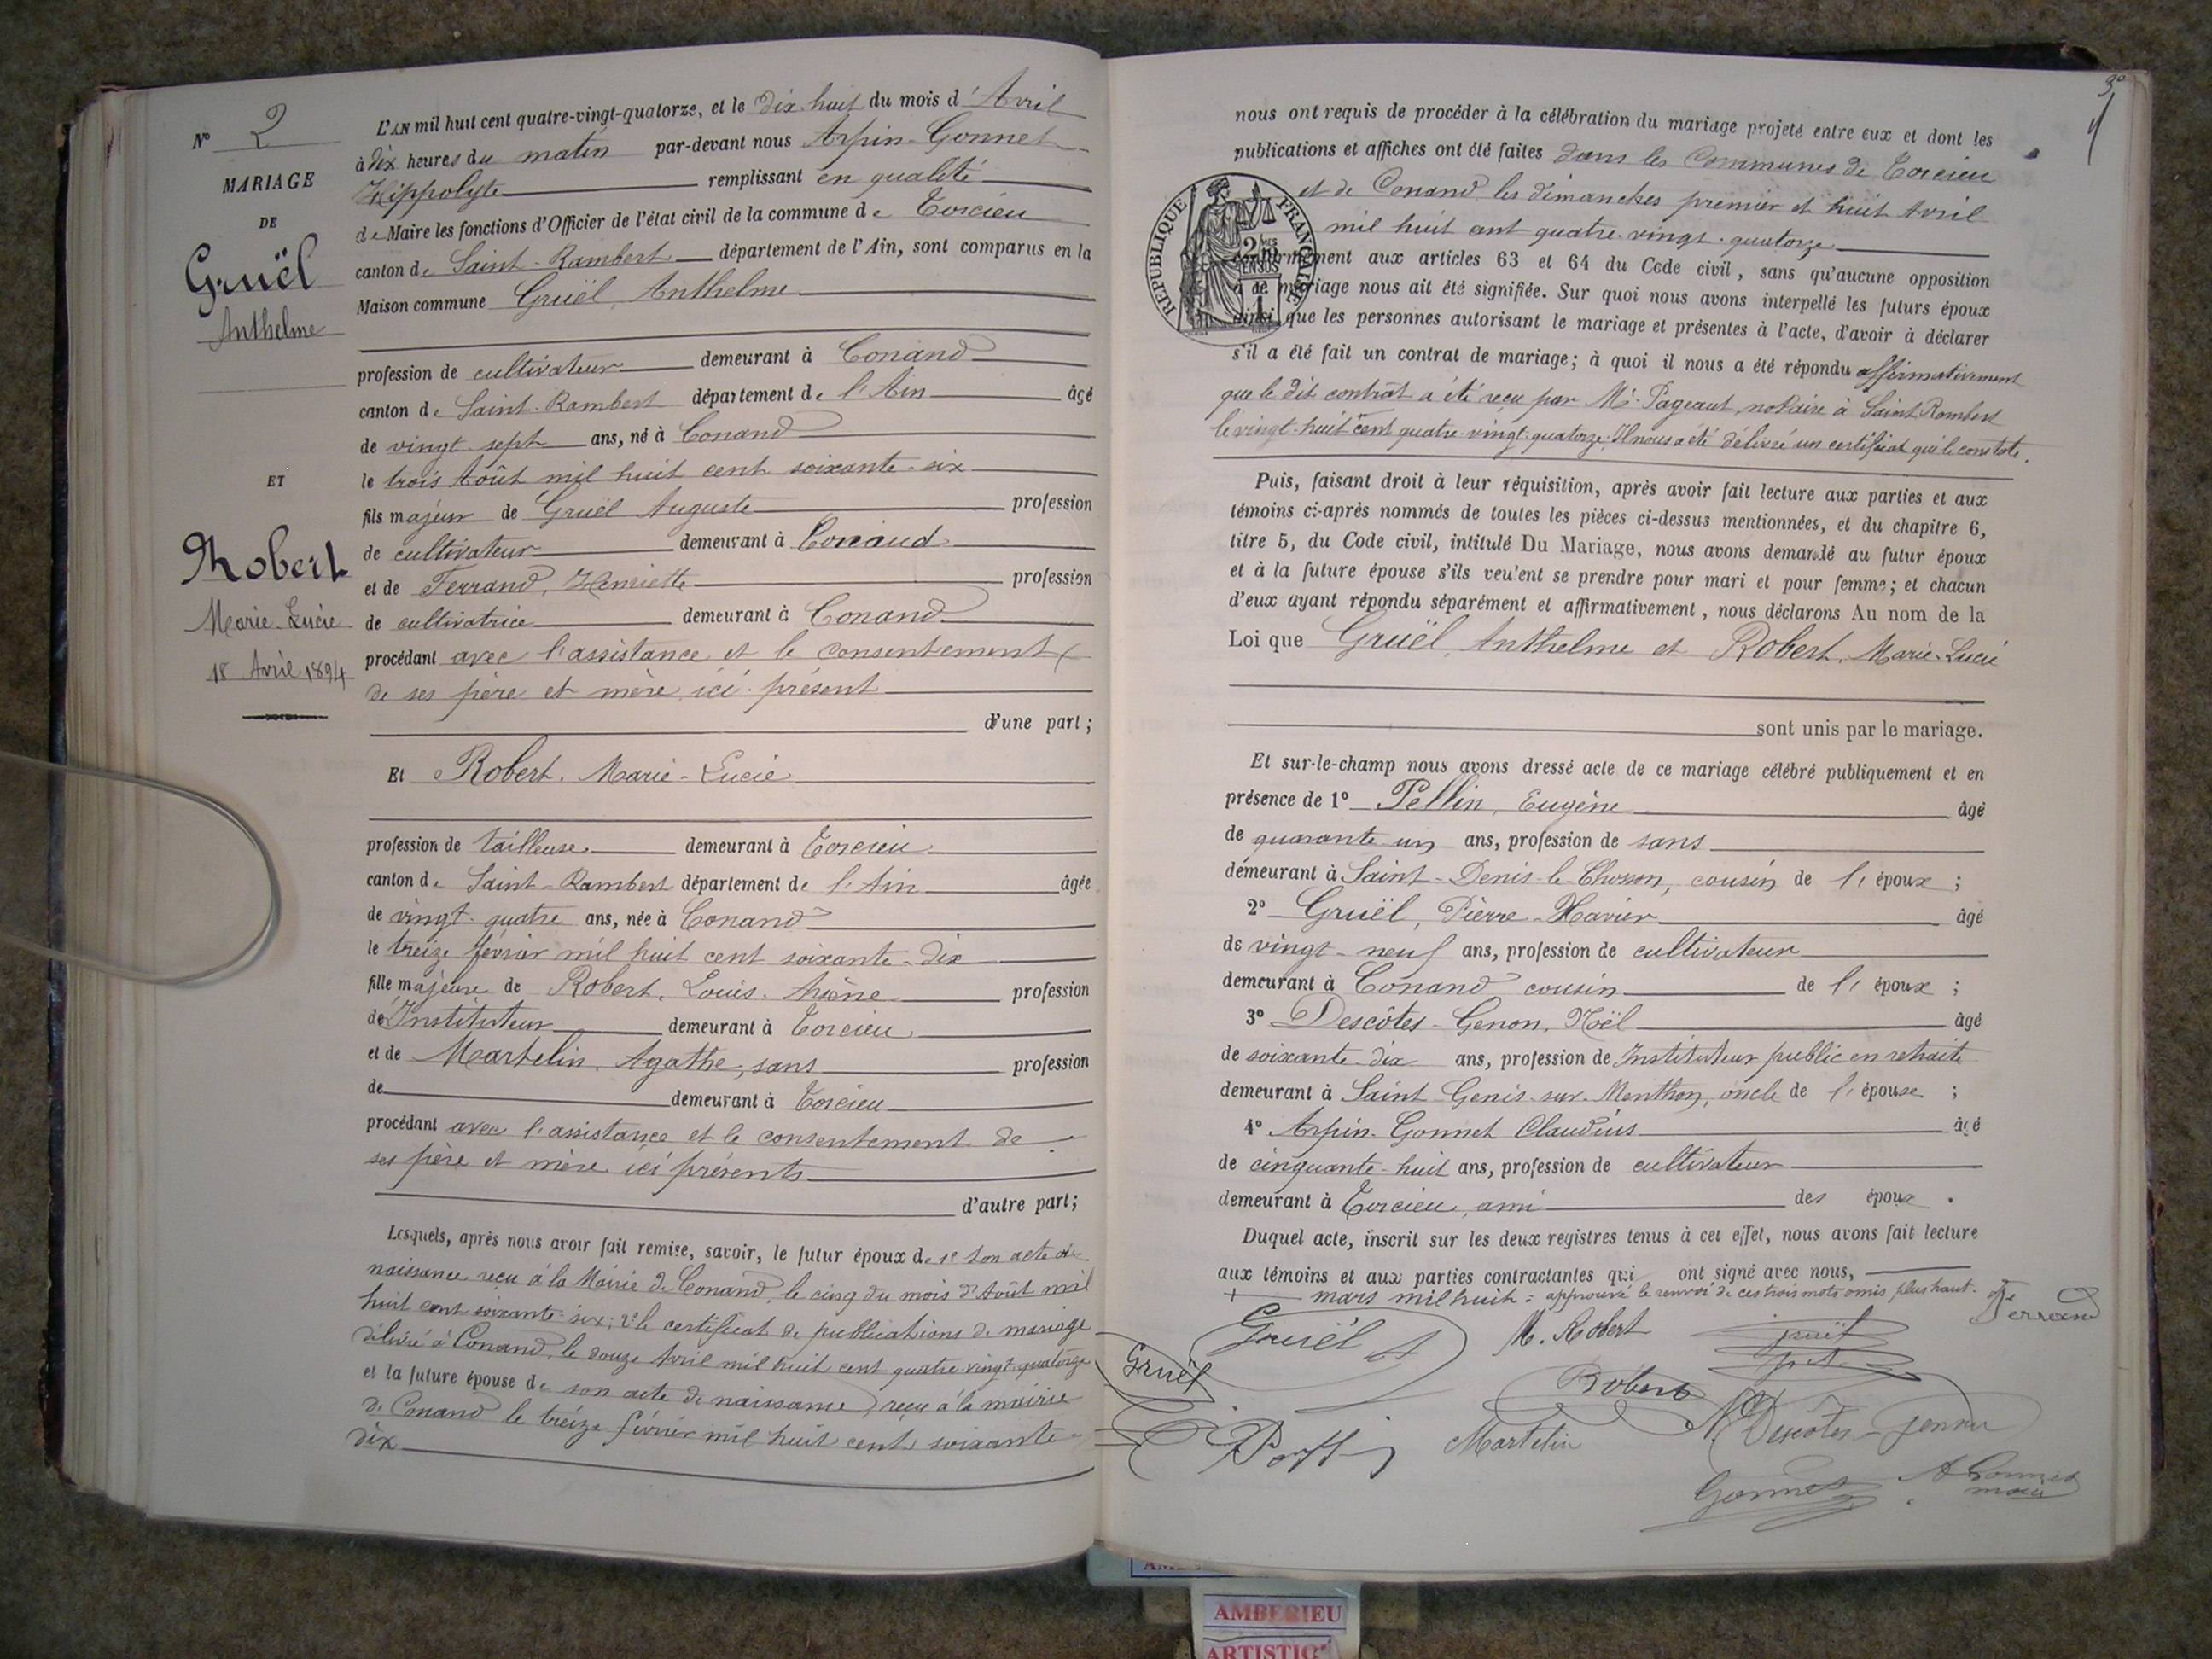 N° 2
MARIAGE
DE
Gruël
Anthelme
ET
Robert
Marie-Lucie
18 Avril 1894
L'AN mil huit cent quatre-vingt-quatorze, et le dix-huit du mois d'Avril
à dix heures du matin par-devant nous Arpin-Gonnet
Hippolyte remplissant en qualité
de Maire les fonctions d'Officier de l'état civil de la commune de Torcieu
canton de Saint-Rambert département de l'Ain, sont comparus en la
Maison commune Gruël, Anthelme
profession de cultivateur demeurant à Conand
canton de Saint-Rambert département de l'Ain âgé
de vingt-sept ans, né à Conand
le trois Août mil huit cent soixante-six
fils majeur de Gruël Auguste profession
de cultivateur demeurant à Conand
et de Ferrand, Henriette profession
de cultivatrice demeurant à Conand
procédant avec l'assistance et le consentement
de ses père et mère ici présent
d'une part;
Et Robert, Marie-Lucie
profession de tailleuse demeurant à Torcieu
canton de Saint-Rambert département de l'Ain âgée
de vingt-quatre ans, née à Conand
le treize février mil huit cent soixante-dix
fille majeure de Robert, Louis, profession
de Instituteur demeurant à Torcieu
et de Martelin, Agathe, sans profession
de demeurant à Torcieu
procédant avec l'assistance et le consentement de
ses père et mère ici présents
d'autre part;
Lesquels, après nous avoir fait remise, savoir, le futur époux de 1° son acte de
naissance reçu à la Mairie de Conand, le cinq du mois d'Août mil
huit cent soixante-six; 2° le certificat de publications de mariage
délivré à Conand, le douze Avril mil huit cent quatre-vingt-quatorze
et la future épouse de son acte de naissance, reçu à la mairie
de Conand le treize février mil huit cent soixante-
dix
3
nous ont requis de procéder à la célébration du mariage projeté entre eux et dont les
publications et affiches ont été faites dans les Communes de Torcieu
et de Conand, les dimanches premier et huit Avril
mil huit cent quatre-vingt-quatorze
RÉPUBLIQUE FRANÇAISE
conformément aux articles 63 et 64 du Code civil, sans qu'aucune opposition
à ce mariage nous ait été signifiée. Sur quoi nous avons interpellé les futurs époux
ainsi que les personnes autorisant le mariage et présentes à l'acte, d'avoir à déclarer
s'il a été fait un contrat de mariage; à quoi il nous a été répondu affirmativement
que le dit contrat a été reçu par Me Pageaut, notaire à Saint Rambert
le vingt-huit + cent quatre-vingt-quatorze. Il nous a été délivré un certificat qui le constate.
Puis, faisant droit à leur réquisition, après avoir fait lecture aux parties et aux
témoins ci-après nommés de toutes les pièces ci-dessus mentionnées, et du chapitre 6,
titre 5, du Code civil, intitulé Du Mariage, nous avons demandé au futur époux
et à la future épouse s'ils veulent se prendre pour mari et pour femme; et chacun
d'eux ayant répondu séparément et affirmativement, nous déclarons Au nom de la
Loi que Gruël, Anthelme et Robert, Marie-Lucie
sont unis par le mariage.
Et sur-le-champ nous avons dressé acte de ce mariage célébré publiquement et en
présence de 1° Pellin, Eugène âgé
de quarante-un ans, profession de sans
demeurant à Saint-Denis-le-Chosson, cousin de l'époux;
2° Gruël, Pierre-Xavier âgé
de vingt-neuf ans, profession de cultivateur
demeurant à Conand cousin de l'époux;
3° Descôtes-Genon, Noël âgé
de soixante-dix ans, profession de Instituteur public en retraite
demeurant à Saint Genis-sur-Menthon, oncle de l'épouse;
4° Arpin-Gonnet Claudius âgé
de cinquante-huit ans, profession de cultivateur
demeurant à Torcieu, ami des époux.
Duquel acte, inscrit sur les deux registres tenus à cet effet, nous avons fait lecture
aux témoins et aux parties contractantes qui ont signé avec nous,
+ mars mil huit = approuvé le renvoi de ces trois mots omis plus haut.
Ferrand
Gruël A
M. Robert
Gruël
Robert
Martelin
N. Descôtes-Genon
Gonnet
A Gonnet
maire
AMBERIEU
ARTISTIC